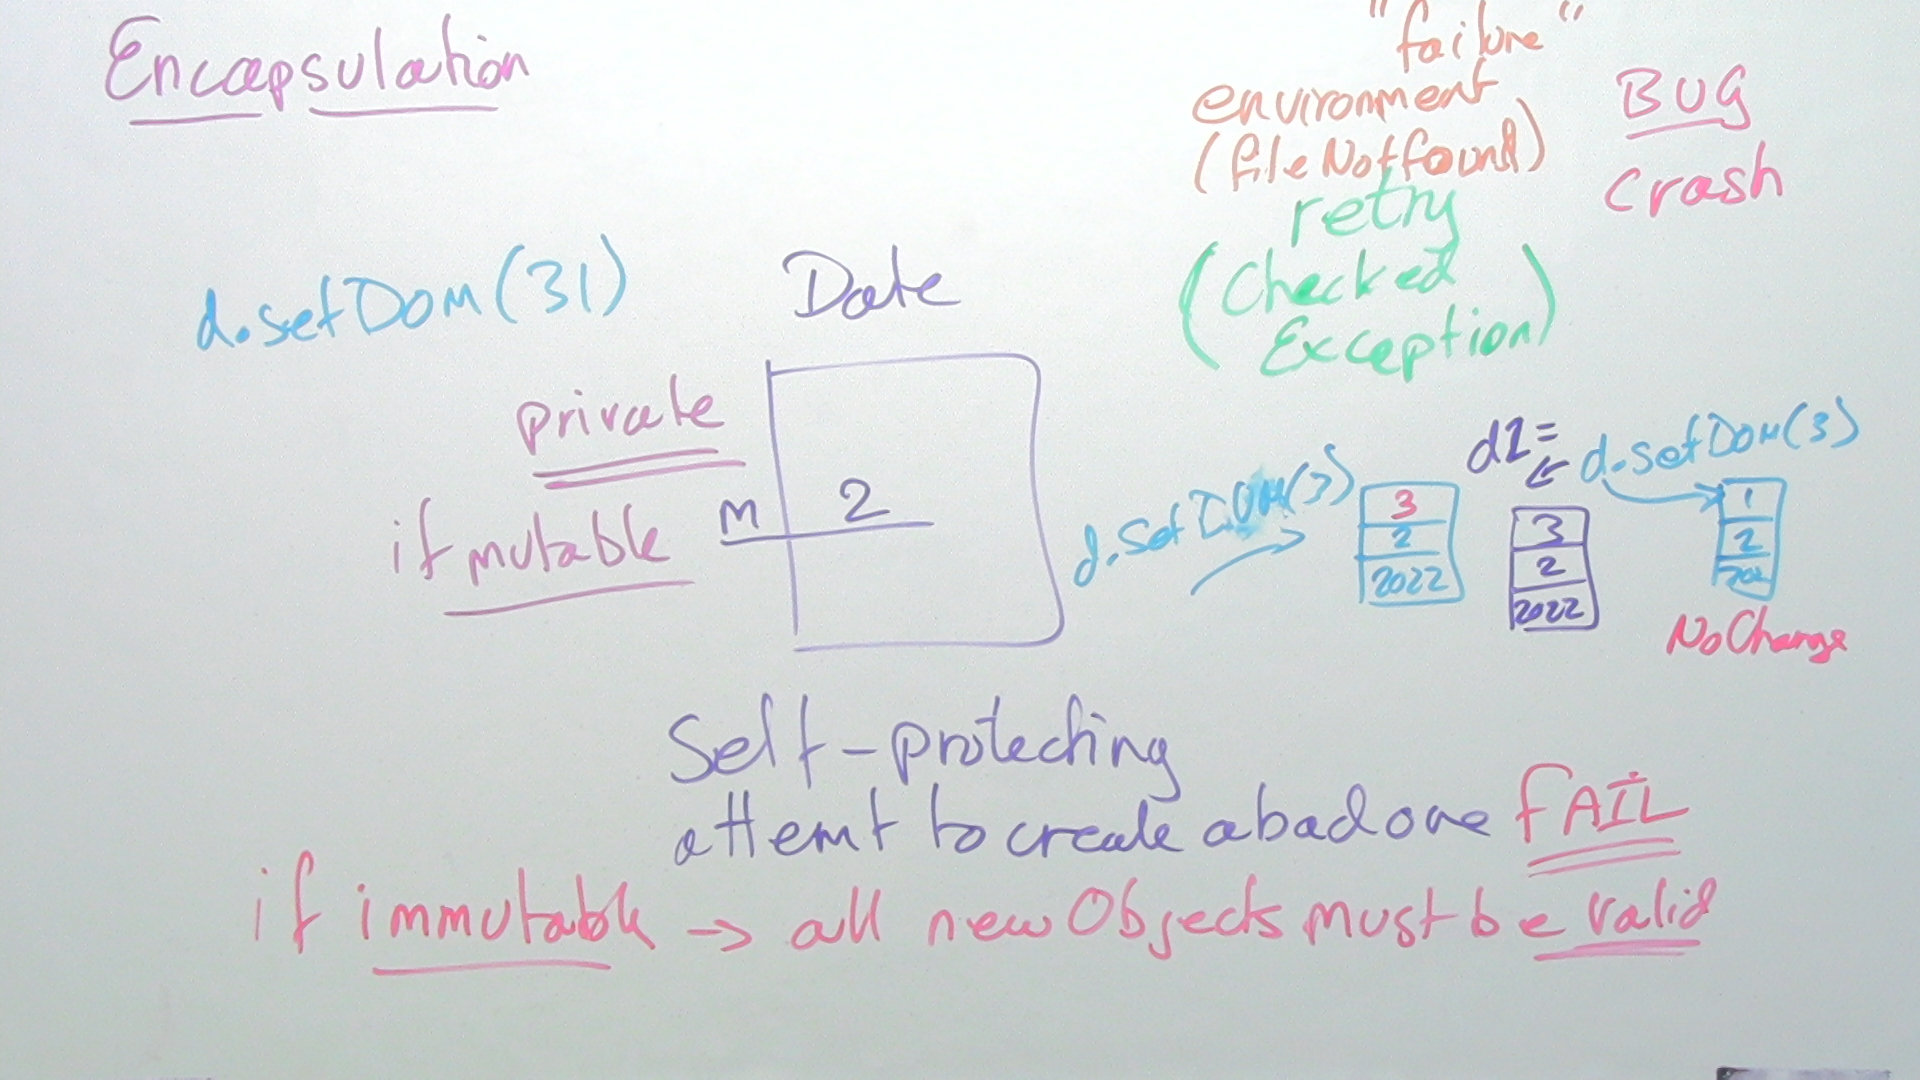 Encapsulation
"failure"
environment
(fileNotfound)
retry
(Checked
Exception)
BUG
crash
d.setDOM(31)
Date
private
if mutable
M 2
d.setDOM(3)
3
2
2022
d2=
3
2
2022
d.setDOM(3)
1
2
202
No Change
Self-protecting
attemt to create a bad one FAIL
if immutable → all new Objects must be valid